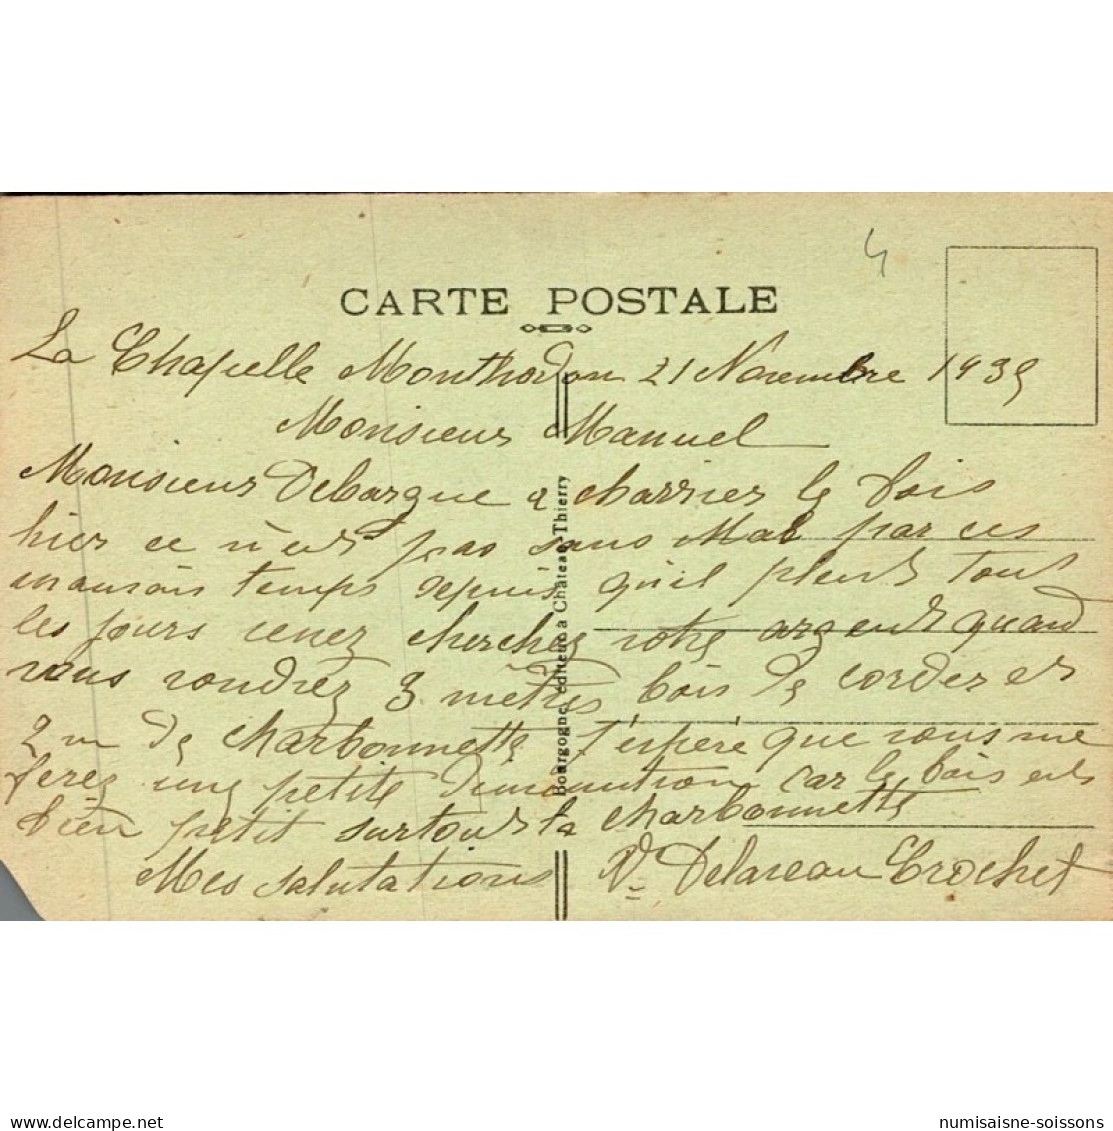 4
CARTE POSTALE
La Chapelle Monthodon 21 Novembre 1939
Monsieur Manuel
Monsieur Debarque a charrier le bois
hier ce n'est pas sans Mal par ces
mauvais temps depuis qu'il pleut tout
les jours venez cherchez votre argent quand
vous voudrez 3 mètres bois de corder et
2 m de charbonnette J'espère que vous me
ferez une petite diminution car le bois est
bien petit surtout la charbonnette
Mes salutations Ve Delaveau Crochet
Bourgogne, éditeur à Château-Thierry
delcampe.net
numisaisne-soissons